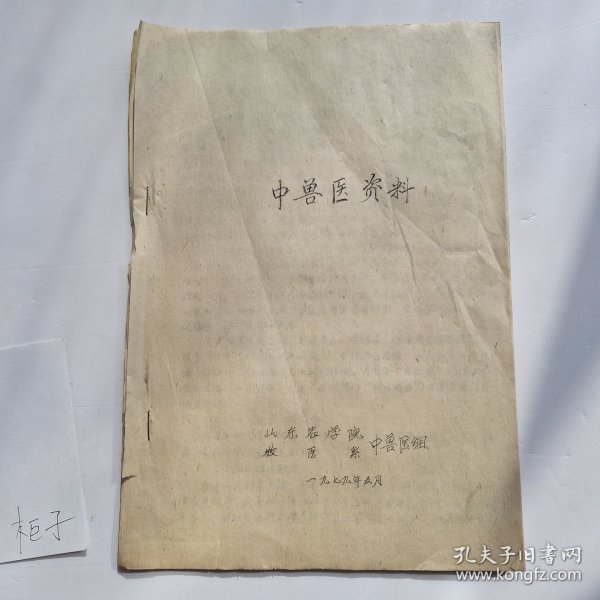 中兽医资料
山东农学院
牧医系 中兽医组
一九七九年五月
柜子
孔夫子旧书网
www.kongfz.com